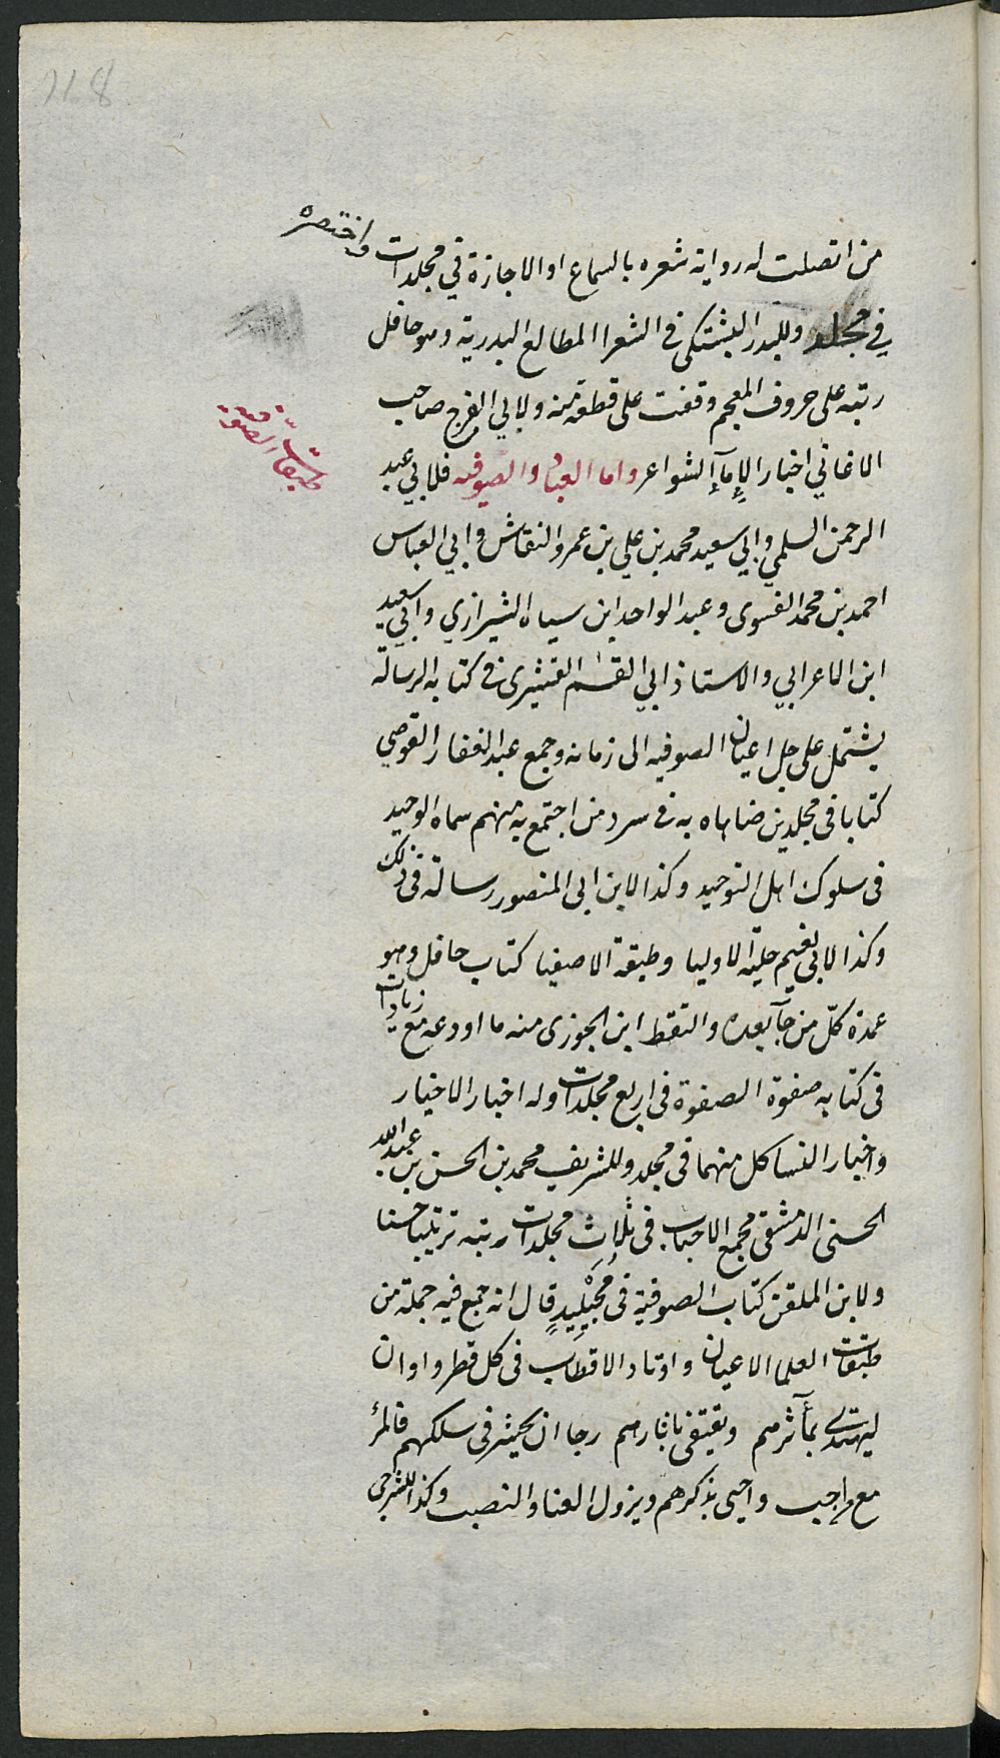 218
من اتصلت له رواية شعره بالسماع او الاجازة في مجلدات واختصره
في مجلد وللبدر البشتكى في الشعرا المطالع البدرية وهو حافل
رتبه على حروف المعجم وقفت على قطعة منه ولابي الفرج صاحب
الاغاني اخبار الإمآإ الشواعر واما العباد والصوفيه فلابي عبد
طبقات الصوفية
الرحمن السلمي وابي سعيد محمد بن علي بن عمرو النقاش وابي العباس
احمد بن محمد الفسوى وعبد الواحد ابن سياه الشيرازي وابي سعيد
ابن الاعرابي والاستاذ ابي القسم القشيرى في كتابه الرسالة
يشتمل على جل اعيان الصوفيه الى زمانه وجمع عبد الغفار القوصي
كتابا في مجلدين ضاهاه به في سرد من اجتمع به منهم سماه الوحيد
فى سلوك اهل التوحيد وكذا لابن ابى المنصور رسالة في ذلك
وكذا لابي نعيم حلية الاوليا وطبقة الاصفيا كتاب حافل وهو
عمدة كلّ من جآ بعده والتقط ابن الجوزى منه ما اودعه مع زيادات
فى كتابه صفوة الصفوة فى اربع مجلدات وله اخبار الاخيار
واخبار النسا كل منهما فى مجلد وللشريف محمد بن الحسن بن عبد الله
الحسنى الدمشقى مجمع الاحباب فى ثلاث مجلدات رتبه ترتيبا حسنا
ولابن الملقن كتاب الصوفية فى مُجَيْلِيدٍ قال انه جمع فيه جملة من
طبقات العلما الاعيان واوتاد الاقطاب فى كل قطر واوان
ليهتدى بمآثرهم ويقتفى باثارهم رجا ان يحشر فى سلكهم فالمرْ
مع من احب واحيى بذكرهم ويزول العنا والنصب وكذا للشرجى